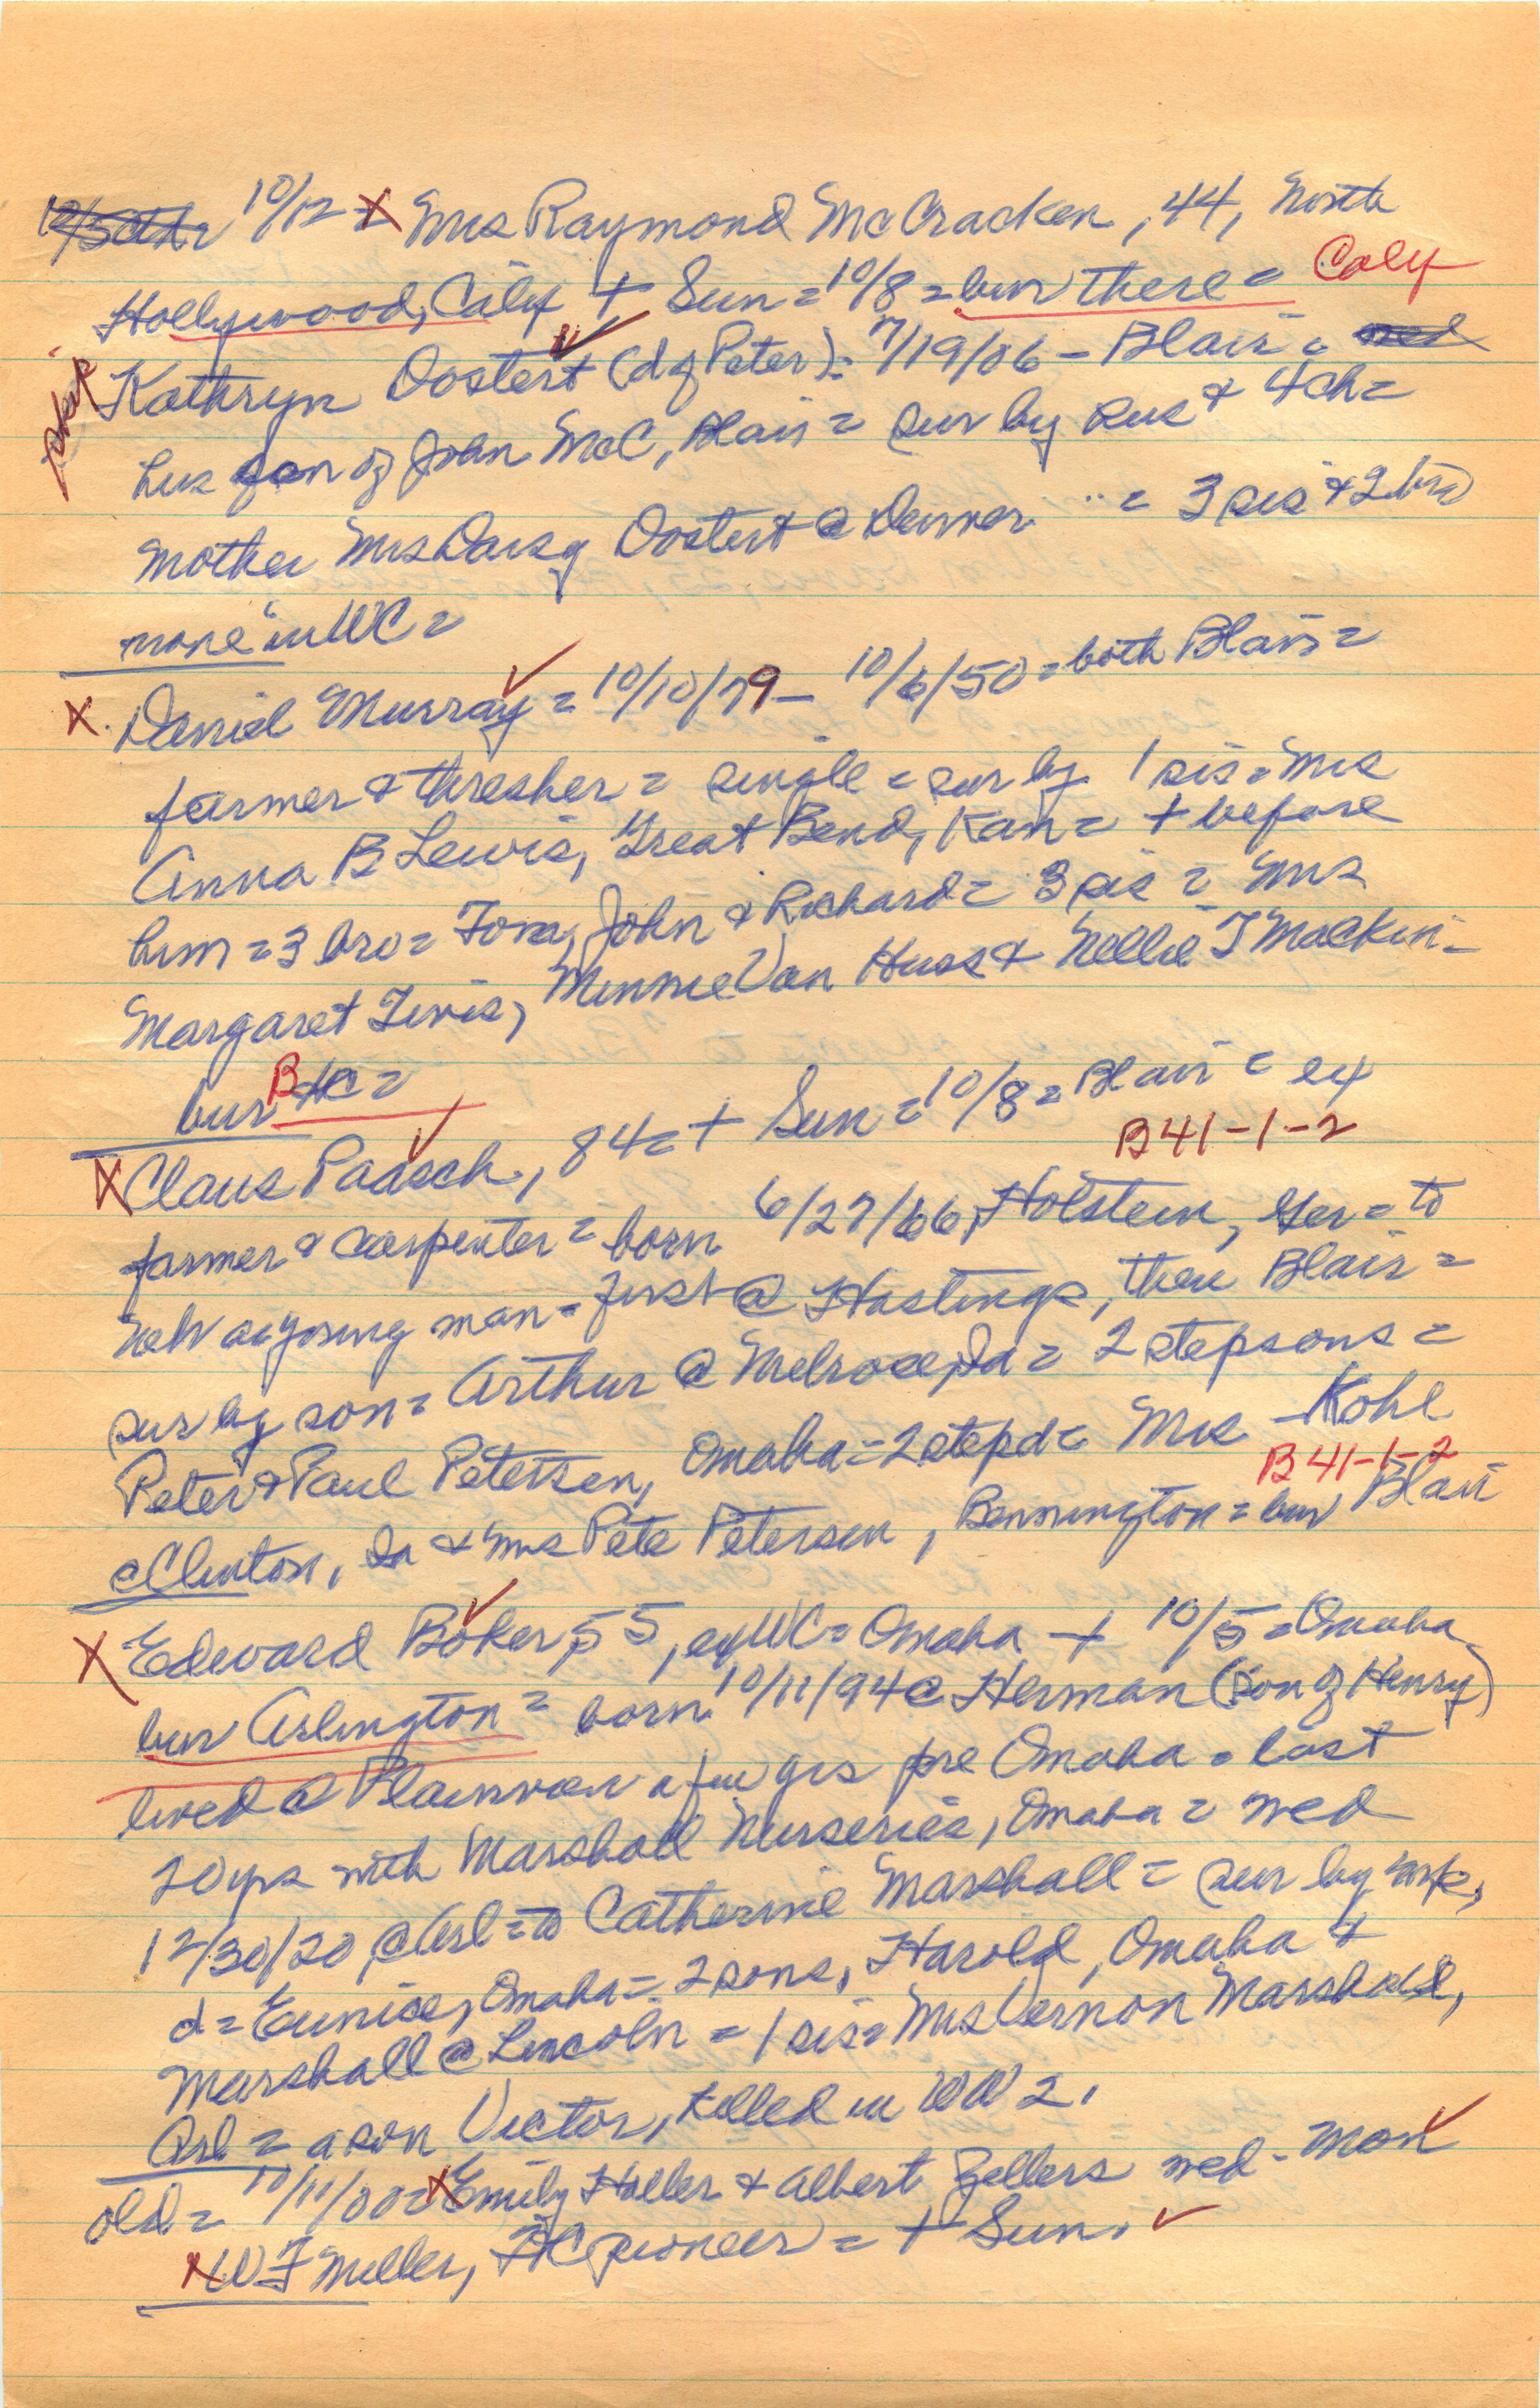 10/12 = X Mrs Raymond McCracken, 44, North
Hollywood, Calif + Sun = 10/8 = bur there = Calif
Kathryn Oostert (d of Peter): 7/19/06 - Blair =
hus son of John McC, Blair = sur by hus & 4 ch =
mother Mrs Daisy Oostert @ Denver " = 3 sis & 2 bro
none in WC =
X Daniel Murray = 10/10/79 - 10/6/50 = both Blair =
farmer & thresher = single = sur by 1 sis = Mrs
Anna B Lewis, Great Bend, Kan = + before
him = 3 bro = Tom, John & Richard = 3 sis = Mrs
Margaret Tivis, Minnie Van Huss & Nellie T Mackin -
bur B HC =
X Claus Paasch, 84 = + Sun = 10/8 = Blair = ex
B 41-1-2
farmer & carpenter = born 6/27/66, Holstein, Ger = to
Neb as young man = first @ Hastings, then Blair =
sur by son = Arthur @ Melrose, Ia = 2 stepsons =
Peter & Paul Petersen, Omaha = 2 stepd = Mrs - Kohl
B 41-1-2
@ Clinton, Ia & Mrs Pete Petersen, Bennington = bur Blair
X Edward Boker, 55, ex WC = Omaha + 10/5 = Omaha
bur Arlington = born 10/11/94 @ Herman (son of Henry)
lived @ Plainview a few yrs pre Omaha = last
20 yrs with Marshall Nurseries, Omaha = wed
12/30/20 @ Arl = to Catherine Marshall = sur by wife,
d = Eunice, Omaha = 2 sons, Harold, Omaha &
Marshall @ Lincoln = 1 sis = Mrs Vernon Marshall,
Arl = a son Victor, killed in WW 2.
old = 10/11/00 = X Emily Holler & Albert Zellers wed - Mon
X W F Miller, HC pioneer = + Sun.